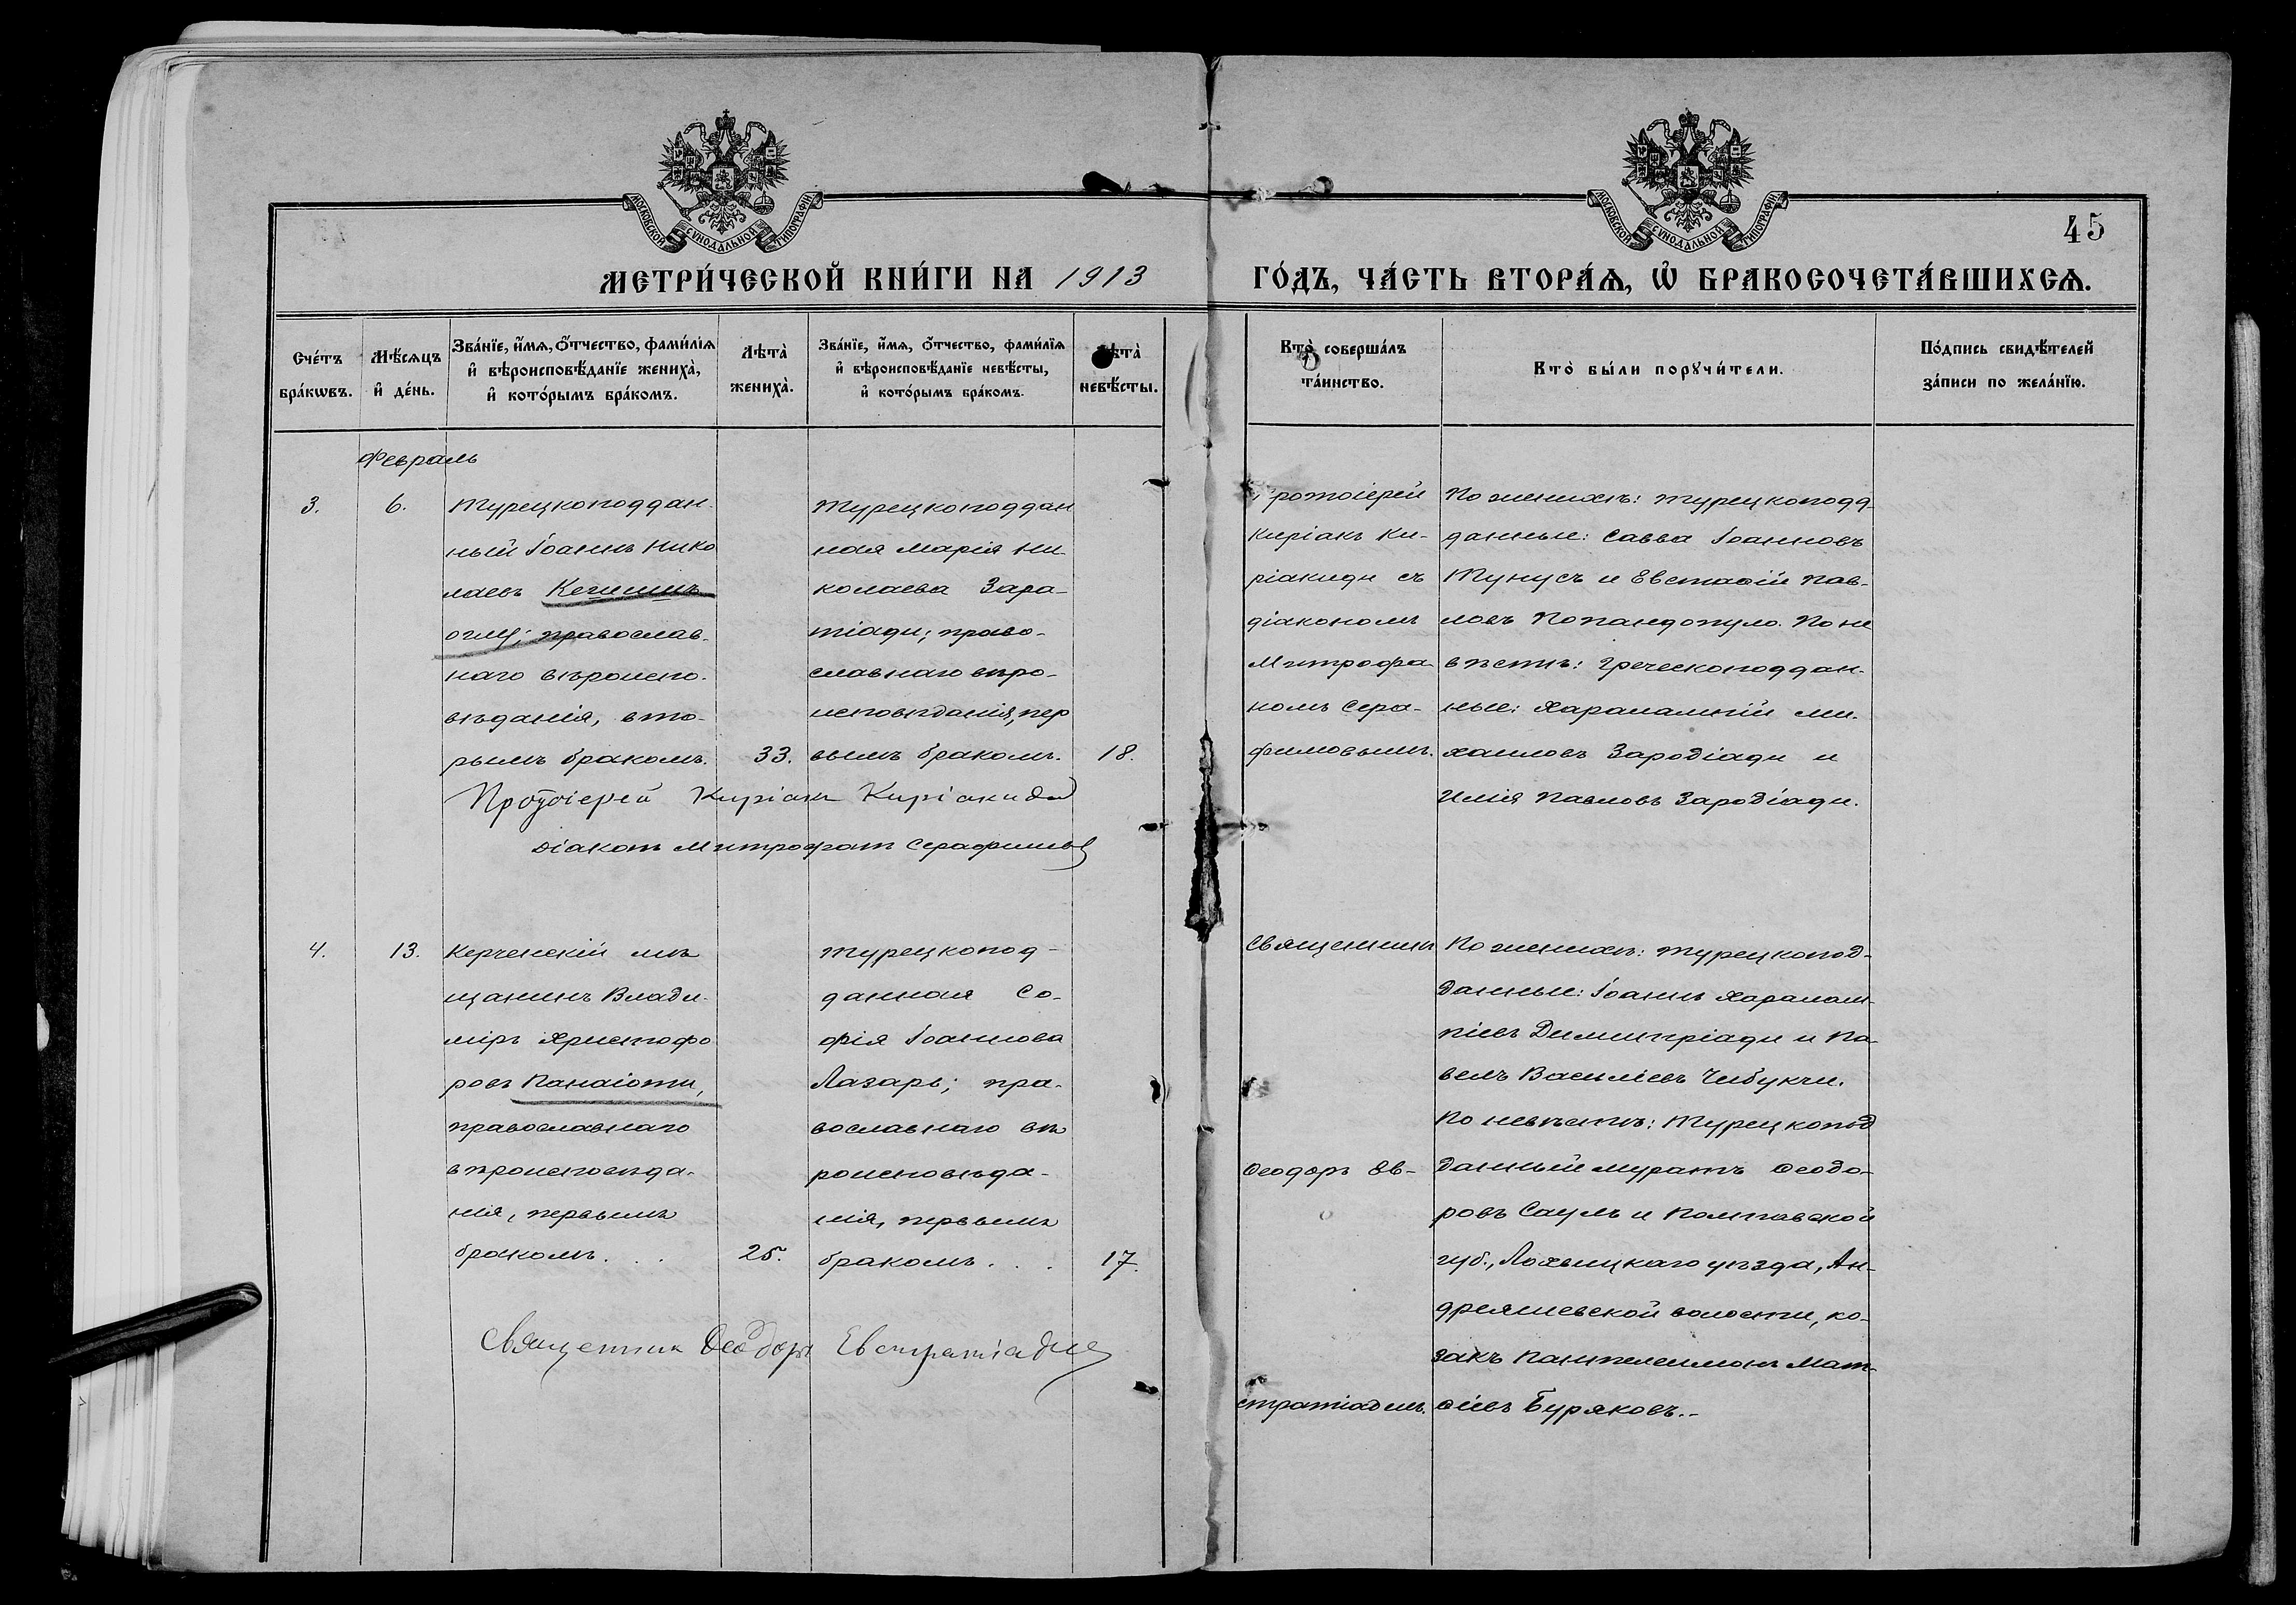 МОСКОВСКОЙ СѴНОДАЛЬНОЙ ТИПОГРАФІИ
МОСКОВСКОЙ СѴНОДАЛЬНОЙ ТИПОГРАФІИ
45
МЕТРИ́ЧЕСКОЙ КНИ́ГИ НА 1913
ГО́ДЪ, ЧА́СТЬ ВТОРА́Ѧ, Ѡ҆ БРАКОСОЧЕТА́ВШИХСѦ.
Сче́тъ
бра́кѡвъ.
Мѣ́сяцъ
и҆ де́нь.
Зва́нїе, и҆́мя, ѻ҆́тчество, фами́лїя
и҆ вѣроисповѣ́данїе жениха̀,
и҆ кото́рымъ бра́комъ.
Лѣта̀
жениха̀.
Зва́нїе, и҆́мя, ѻ҆́тчество, фами́лїя
и҆ вѣроисповѣ́данїе невѣ́сты,
и҆ кото́рымъ бра́комъ.
Лѣта̀
невѣ́сты.
Кто̀ соверша́лъ
та́инство.
Кто̀ бы́ли порꙋчи́тели.
По́дпись свидѣ́телей
за́писи по жела́нїю.
Февраль
3.
6.
Турецкоподдан-
ный Іоаннъ Нико
лаевъ Кешишъ
оглу; православ-
наго вѣроиспо-
вѣданія, вто-
рымъ бракомъ.
33.
Турецкоподдан
ная Марія Ни-
колаева Зара-
тіади; право-
славнаго вѣро-
исповѣданія, пер
вымъ бракомъ.
18.
Протоіерей Киріакъ Киріакиди
діаконъ Митрофанъ Серафимовъ
Протоіерей
Киріакъ Ки-
ріакиди съ
діакономъ
Митрофа-
номъ Сера-
фимовымъ.
По женихѣ: турецкоподд-
данные: Савва Іоанновъ
Тунусъ и Евстаѳій Пав-
ловъ Попандопуло. По не
вѣстѣ: греческоподдан-
ные: Харалампій Ми-
хаиловъ Зародіади и
Илія Павловъ Зародіади.
4.
13.
Керченскій мѣ
щанинъ Влади-
міръ Христофо
ровъ Панаіоти,
православнаго
вѣроисповѣда-
нія, первымъ
бракомъ. . .
25.
Турецкопод-
данная Со-
фія Іоаннова
Лазарь; пра-
вославнаго вѣ
роисповѣда-
нія, первымъ
бракомъ. . .
17.
Священникъ Ѳеодоръ Евстратіадис
Священникъ
Ѳеодоръ Ев-
стратіадисъ.
По женихѣ: турецкопод-
данные: Іоаннъ Харалам-
піевъ Димитріади и Па-
велъ Василіевъ Чибукчи.
По невѣстѣ: Турецкопод
данный Муратъ Ѳеодо-
ровъ Сауль и Полтавской
губ., Лохвицкаго уѣзда, Ан-
дреяшевской волости, ко-
закъ Пантелеимонъ Мат-
ѳіевъ Буряковъ.-